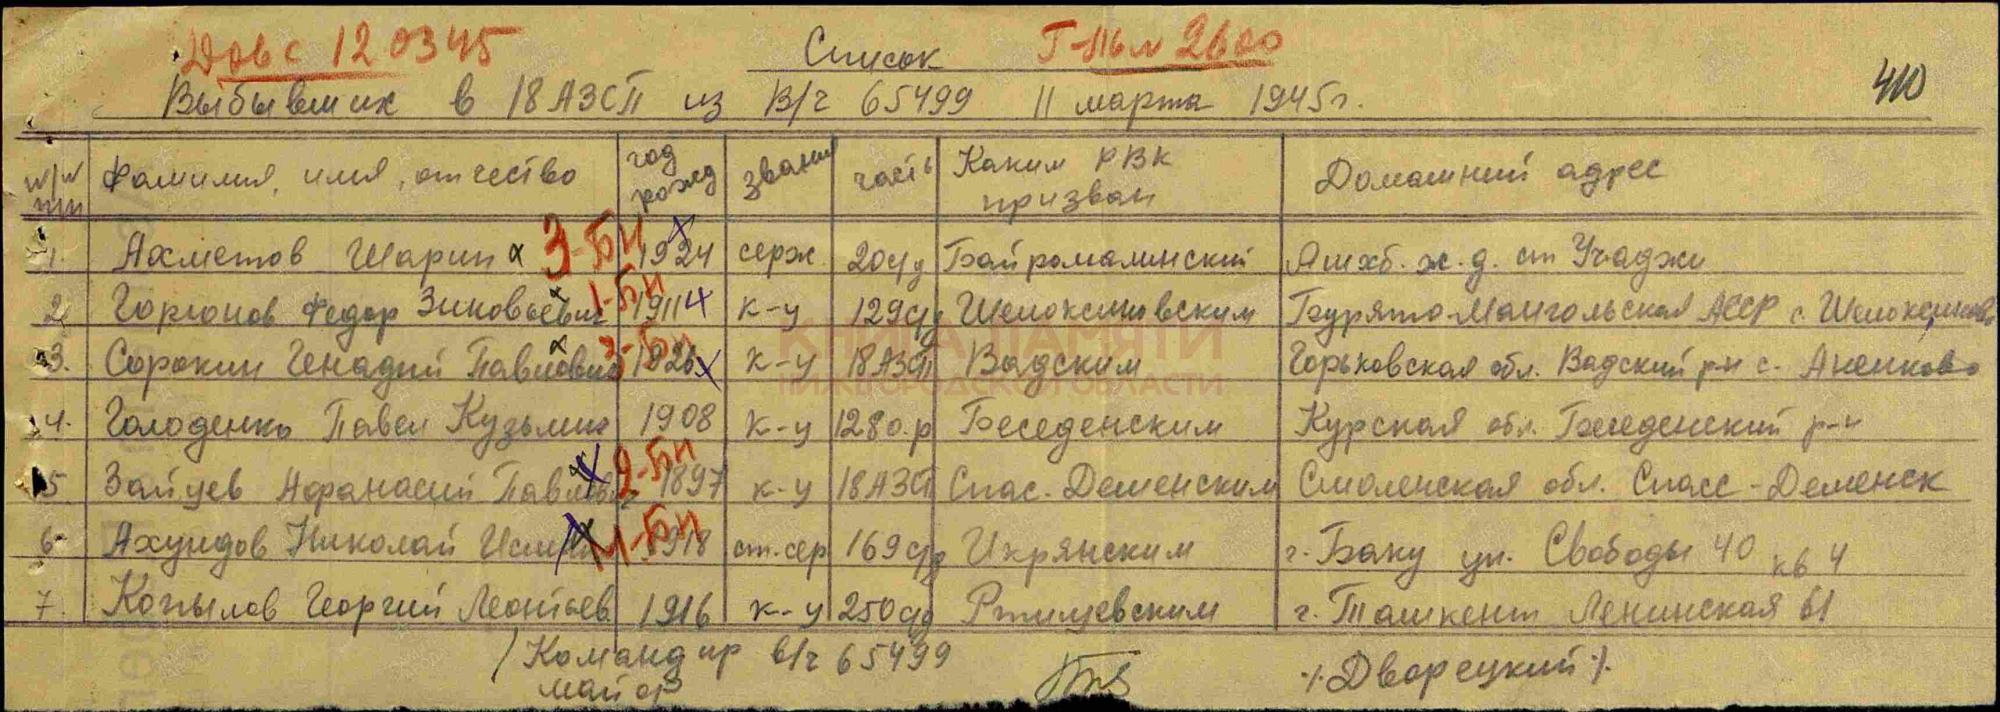 Довс 120345 Список 2600
410
Выбывших в 18 АЗСП из В/ч 65499 11 марта 1945г.
N/N пп Фамилия, имя, отчество год рожд звания часть Каким РВК призван Домашний адрес
1. Ахметов Шарип 3-Бн 1924 серж. 204 Байрамалинский Ашхб. ж.д. ст Учаджи
2. Горюнов Федор Зиновьевич 1-Бн 1911 к-у 129сд Шелоксиновским Бурято-Мангольская АССР с.
3. Сорокин Генадий Павлович 3-Бн 1926 к-у 18АЗСП Вадским Горьковская обл. Вадский р-н с. Аненково
4. Голоденко Павел Кузьмич 1908 к-у 128о.р Беседенским Курская обл. Беседенский р-н
5 Зайцев Афанасий 2-Бн 1897 к-у 18АЗСП Спас. Деменским Смоленская обл. Спасс-Деменск
6 Ахундов Николай 1-Бн 1918 ст.сер 169сд Икрянским г. Баку ул. Свободы 40 кв 4
7. Копылов Георгий Леонтьев 1916 к-у 250сд Ртищевским г. Ташкент Ленинская 61
КНИГА ПАМЯТИ
НИЖЕГОРОДСКОЙ ОБЛАСТИ
Командир в/ч 65499
майор /Дворецкий/